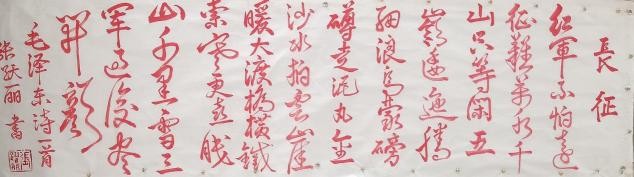 長征
红軍不怕遠
征難萬水千
山只等閑五
嶺逶迤騰
細浪烏蒙磅
礴走泥丸金
沙水拍雲崖
暖大渡橋橫鐵
索寒更喜岷
山千里雪三
軍過後盡
開顏
毛泽东诗一首
张跃丽書